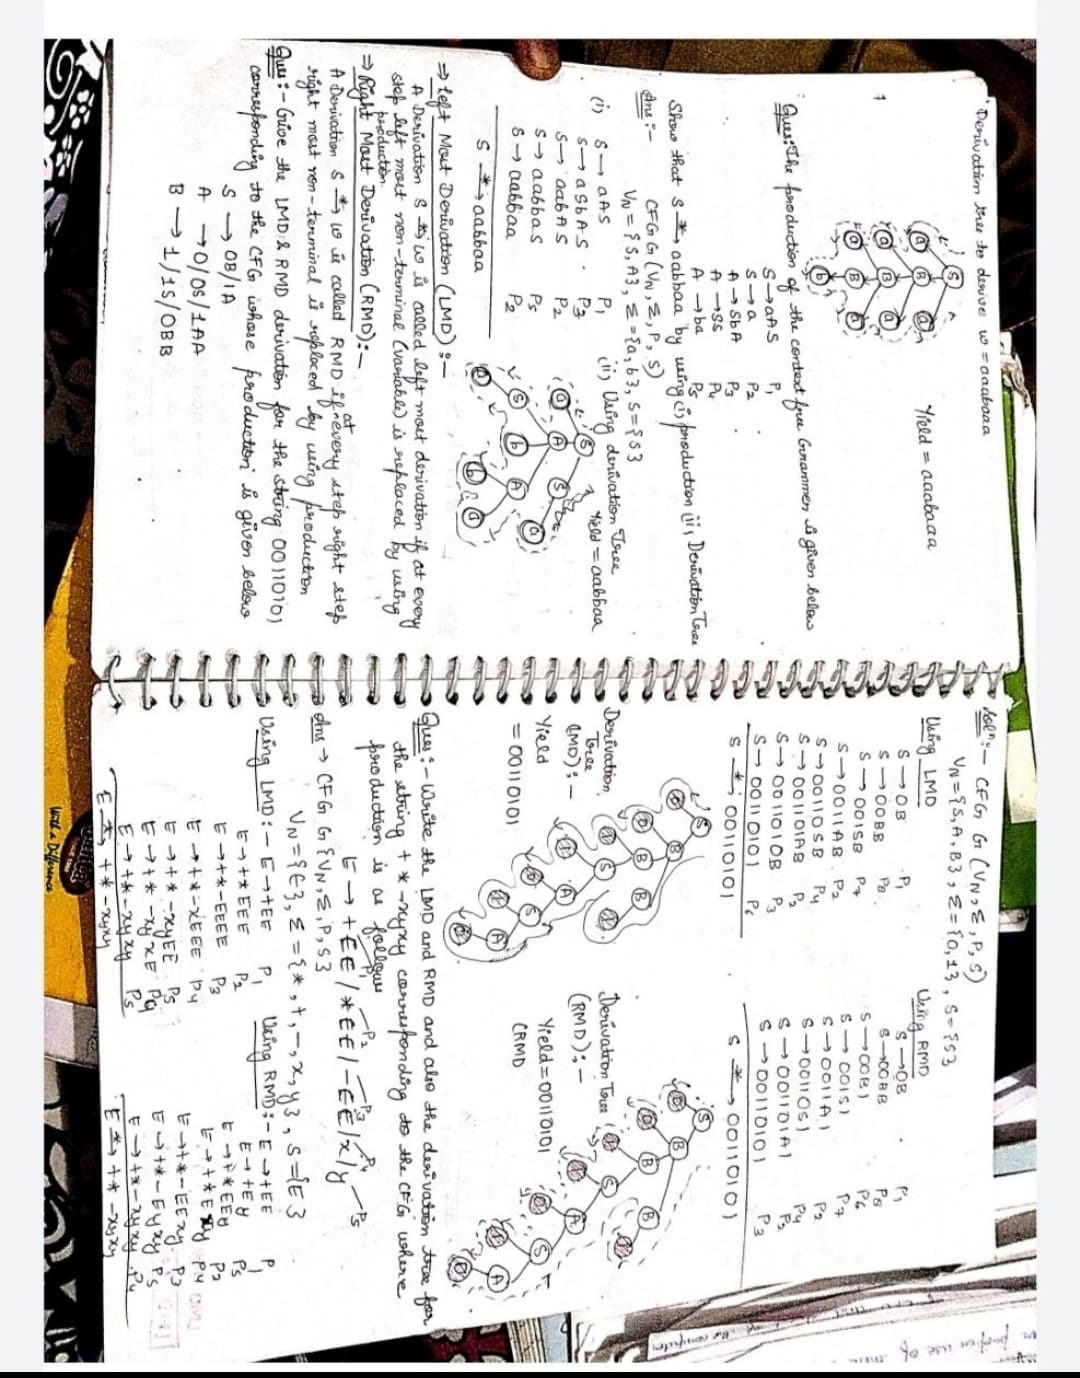 Derivation tree to derive w = aaabaaa
Yield = aaabaaa
S
a B a
a B a
a B a
b
Ques: The production of the context free Grammer is given below
S → aAS P1
S → a P2
A → SbA P3
A → SS P4
A → ba P5
Show that S *→ aabbaa by using (i) production (ii) Derivation Tree
Ans :- CFG G (VN, Σ, P, S)
VN = {S, A}, Σ = {a, b}, S = {S}
(i) S → aAS P1
S → aSbAS P3
S → aabAS P2
S → aabbaS P5
S → aabbaa P2
S *→ aabbaa
(ii) Using derivation Tree
Yield = aabbaa
S
a A S
S b A a
a b a
⇒ Left Most Derivation (LMD) :-
A Derivation S *→ w is called left most derivation if at every
step left most non-terminal (variable) is replaced by using
production.
⇒ Right Most Derivation (RMD):-
A Derivation S *→ w is called RMD if at every step right step
right most non-terminal is replaced by using production
Ques :- Give the LMD & RMD derivation for the string 00110101
corresponding to the CFG whose production is given below
S → 0B/1A
A → 0/0S/1AA
B → 1/1S/0BB
Soln :- CFG G (VN, Σ, P, S)
VN = {S, A, B}, Σ = {0, 1}, S = {S}
Using LMD
S → 0B P1
S → 00BB P8
S → 001SB P7
S → 0011AB P2
S → 00110SB P4
S → 001101AB P2
S → 0011010B P3
S → 00110101 P6
S *→ 00110101
Using RMD
S → 0B P1
S → 00BB P8
S → 00B1 P6
S → 001S1 P7
S → 0011A1 P2
S → 00110S1 P4
S → 001101A1 P2
S → 00110101 P3
S *→ 00110101
S
0 B
0 B B
1 S 1
1 A
0 S
1 A
0
Derivation
Tree
(LMD) :-
Yield
= 00110101
S
0 B
0 B B
1 S 1
1 A
0 S
1 A
0
Derivation Tree
(RMD) :-
Yield = 00110101
(RMD
Ques :- Write the LMD and RMD and also the derivation tree for
the string + * -xyxy corresponding to the CFG where
production is as follows
P1 P2 P3 P4 P5
E → +EE/*EE/-EE/x/y
Ans → CFG G {VN, Σ, P, S}
VN = {E}, Σ = {*, +, -, x, y}, S = {E}
Using LMD :- E → +EE P1
E → +*EEE P2
E → +*-EEEE P3
E → +*-xEEE P4
E → +*-xyEE P5
E → +*-xyxE P4
E → +*-xyxy P5
E *→ +*-xyxy
Using RMD :- E → +EE P1
E → +Ey P5
E → +*EEy P2
E → +*Exy P4
E → +*-EExy P3
E → +*-Eyxy P5
E → +*-xyxy P4
E *→ +*-xyxy
With a Difference